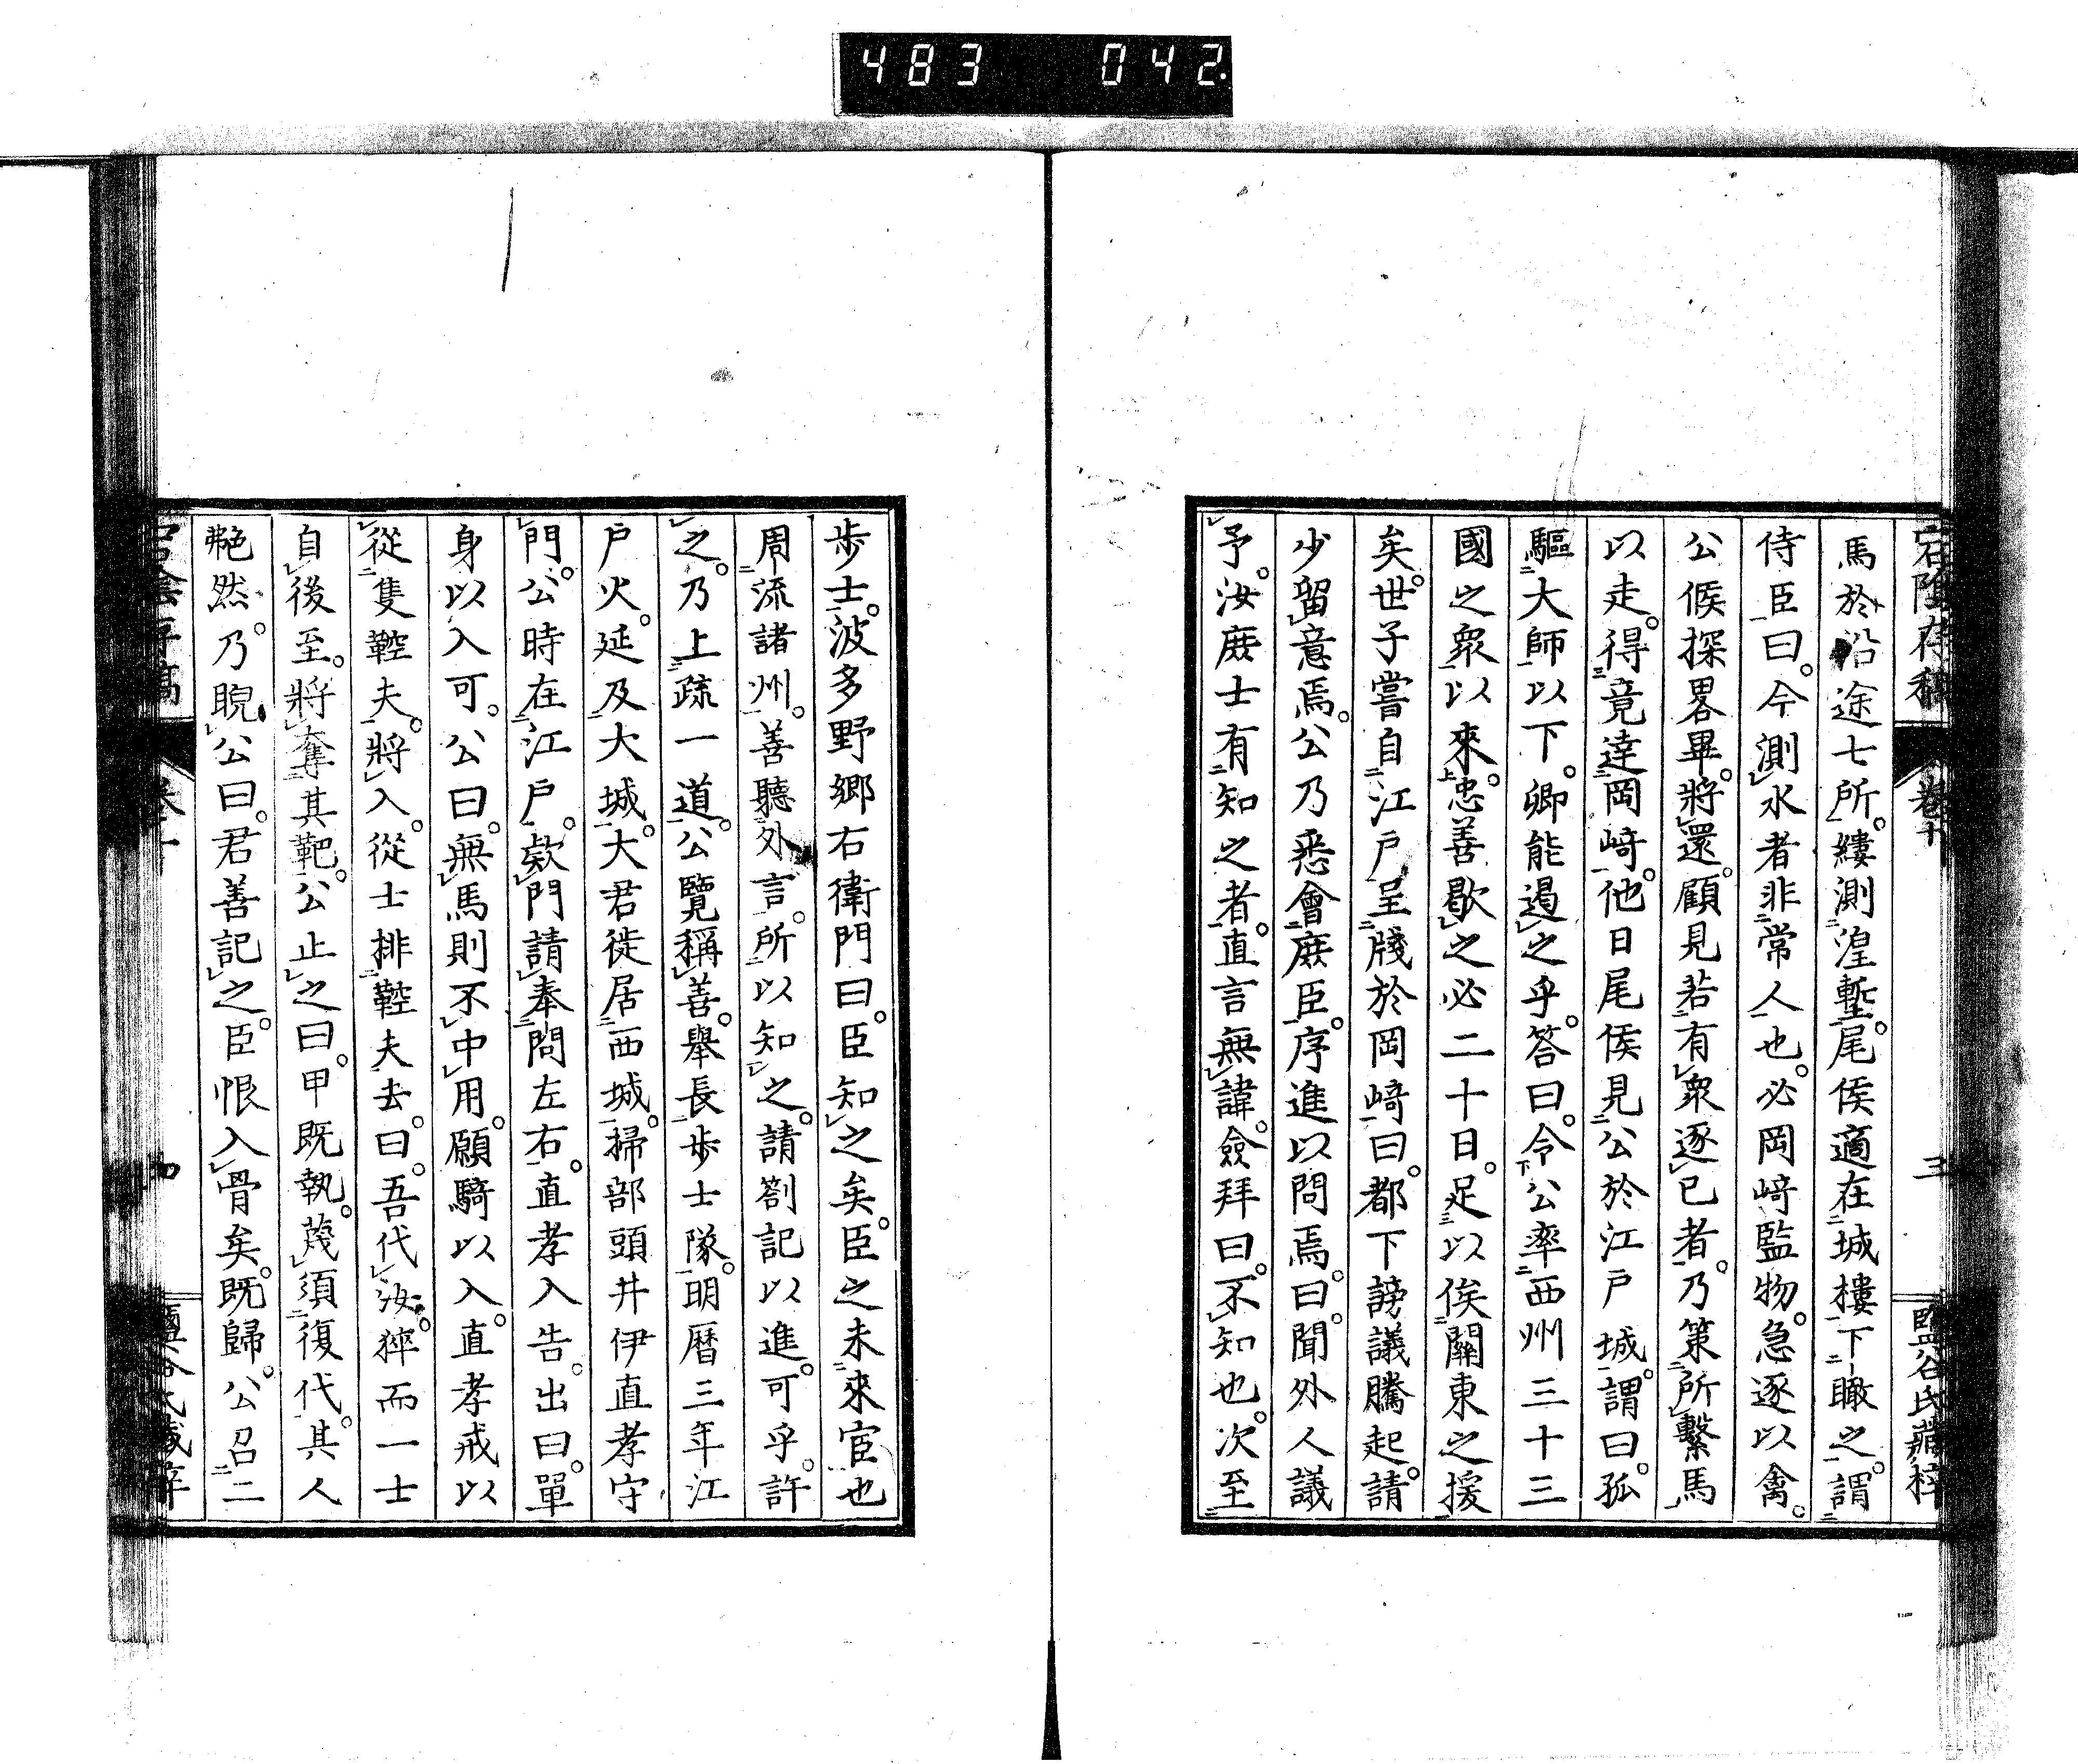 483 042
宕陰存稿
卷十
三
鹽谷氏藏梓
馬於沿途七所縷測湟塹尾侯適在城樓下瞰之謂
侍臣曰今測水者非常人也必岡﨑監物急逐以禽
公候探畧畢將還顧見若有衆逐已者乃策所繫馬
以走得竟達岡﨑他日尾侯見公於江戸城謂曰孤
驅大師以下卿能遏之乎答曰令公率西州三十三
國之衆以來忠善歇之必二十日足以俟關東之援
矣世子嘗自江戸呈牋於岡﨑曰都下謗議騰起請
少留意焉公乃悉會庶臣序進以問焉曰聞外人議
予汝庶士有知之者直言無諱僉拜曰不知也次至
步士波多野郷右衛門曰臣知之矣臣之未來宦也
周流諸州善聽外言所以知之請劄記以進可乎許
之乃上疏一道公覽稱善舉長步士隊明曆三年江
戸火延及大城大君徙居西城掃部頭井伊直孝守
門公時在江戸款門請奉問左右直孝入告出曰單
身以入可公曰無馬則不中用願騎以入直孝戒以
從隻鞚夫將入從士排鞚夫去曰吾代汝猝而一士
自後至將奪其靶公止之曰甲既執蔑須復代其人
艴然乃睨公曰君善記之臣恨入骨矣既歸公召二
宕陰存稿
卷十
四
鹽谷氏藏梓